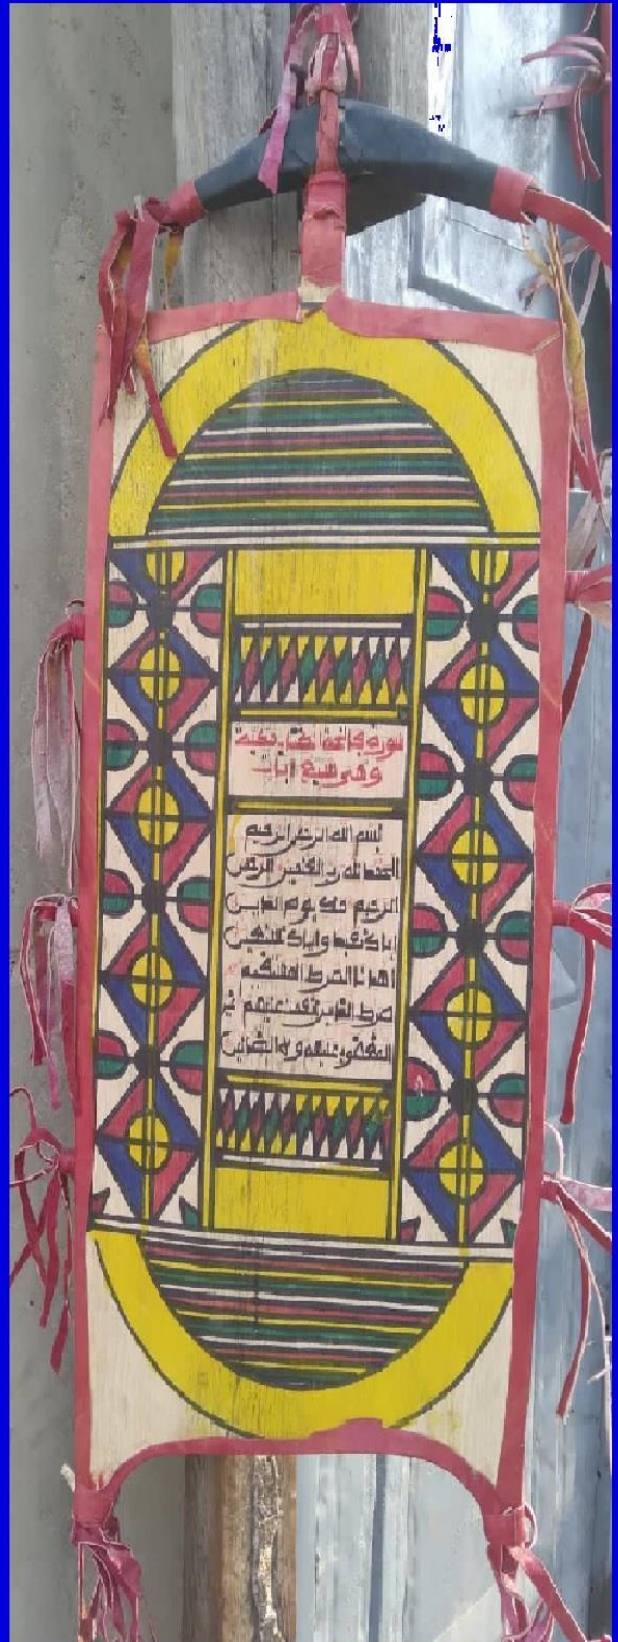 سورة فاتحة الكتاب مكية
وهي سبع ايات
بسم الله الرحمن الرحيم
الحمد لله رب العلمين الرحمن
الرحيم ملك يوم الدين
اياك نعبد واياك نستعين
اهدنا الصرط المستقيم
صرط الذين انعمت عليهم غير
المغضوب عليهم ولا الضالين